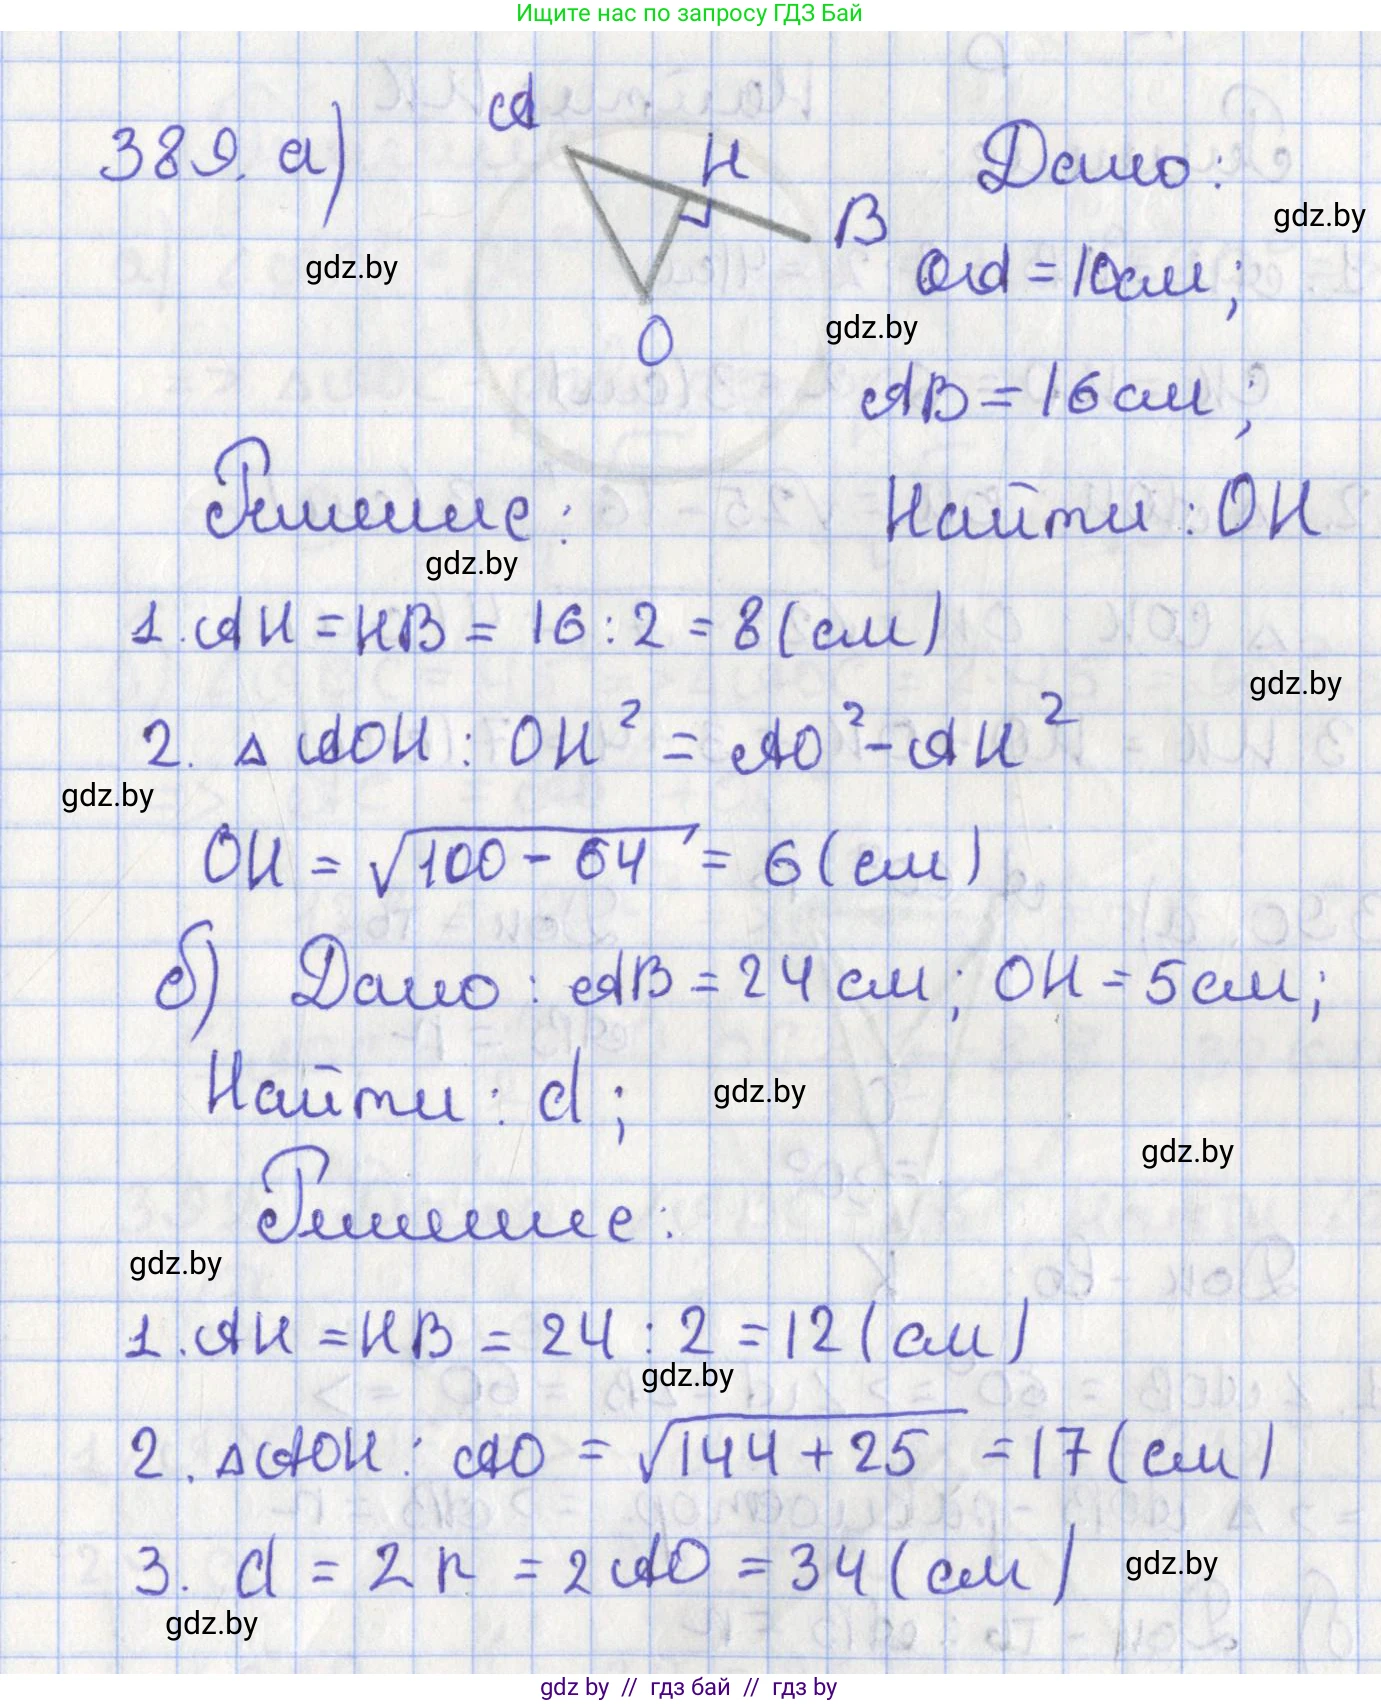 Ищите нас по запросу ГДЗ Бай
389. а)
A
H
B
O
Дано:
gdz.by
gdz.by
OA = 10см;
gdz.by
AB = 16см;
Решение:
Найти: OH
gdz.by
1. AH = HB = 16 : 2 = 8 (см)
gdz.by
2. △ AOH : OH² = AO² - AH²
gdz.by
OH = √100 - 64 = 6 (см)
б) Дано: AB = 24 см; OH = 5см;
Найти: d;
gdz.by
gdz.by
Решение:
gdz.by
1. AH = HB = 24 : 2 = 12 (см)
gdz.by
2. △AOH : AO = √144 + 25 = 17 (см)
3. d = 2r = 2AO = 34 (см)
gdz.by
gdz.by
gdz by // гдз бай // гдз by